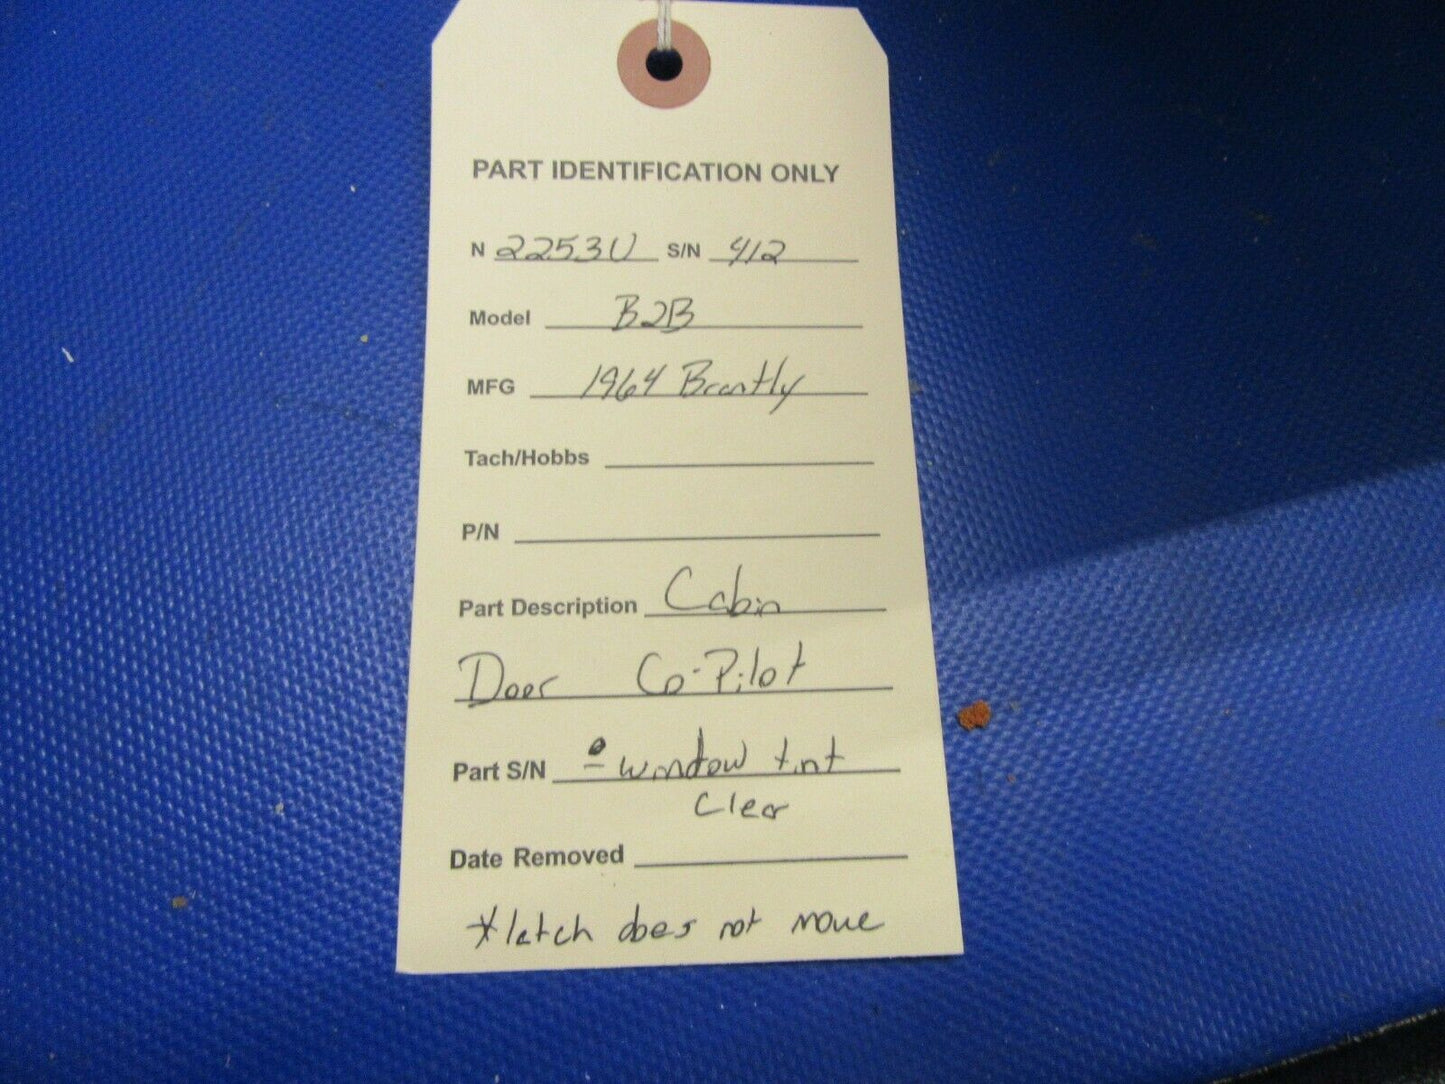 PART IDENTIFICATION ONLY
N 2253U S/N 412
Model B2B
MFG 1964 Brantly
Tach/Hobbs
P/N
Part Description Cabin
Door Co-Pilot
Part S/N - window tint
Clear
Date Removed
*latch does not move